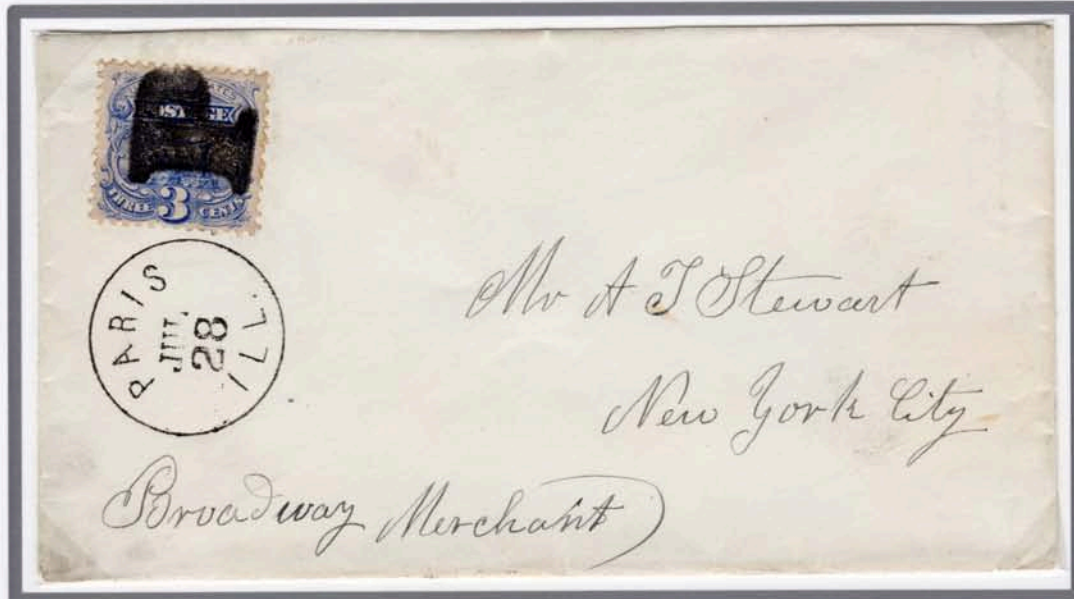 POSTAGE
THREE 3 CENTS
PARIS ILL.
JUL.
28
Mr A T Stewart
New York City
Broadway Merchant)